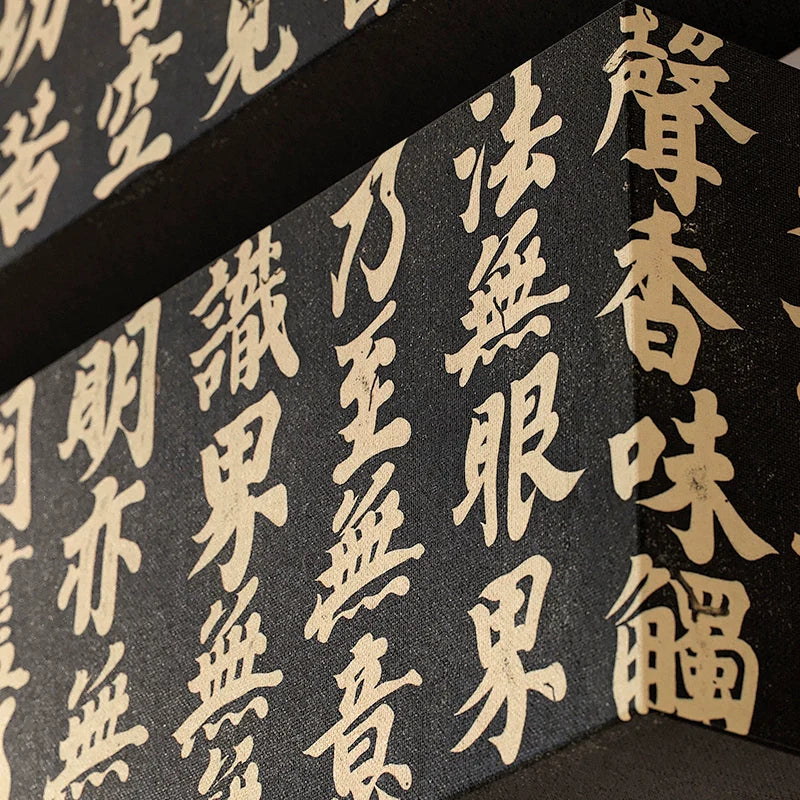 見
皆空
切苦
聲香味觸
法無眼界
乃至無意
識界無無
明亦無
明